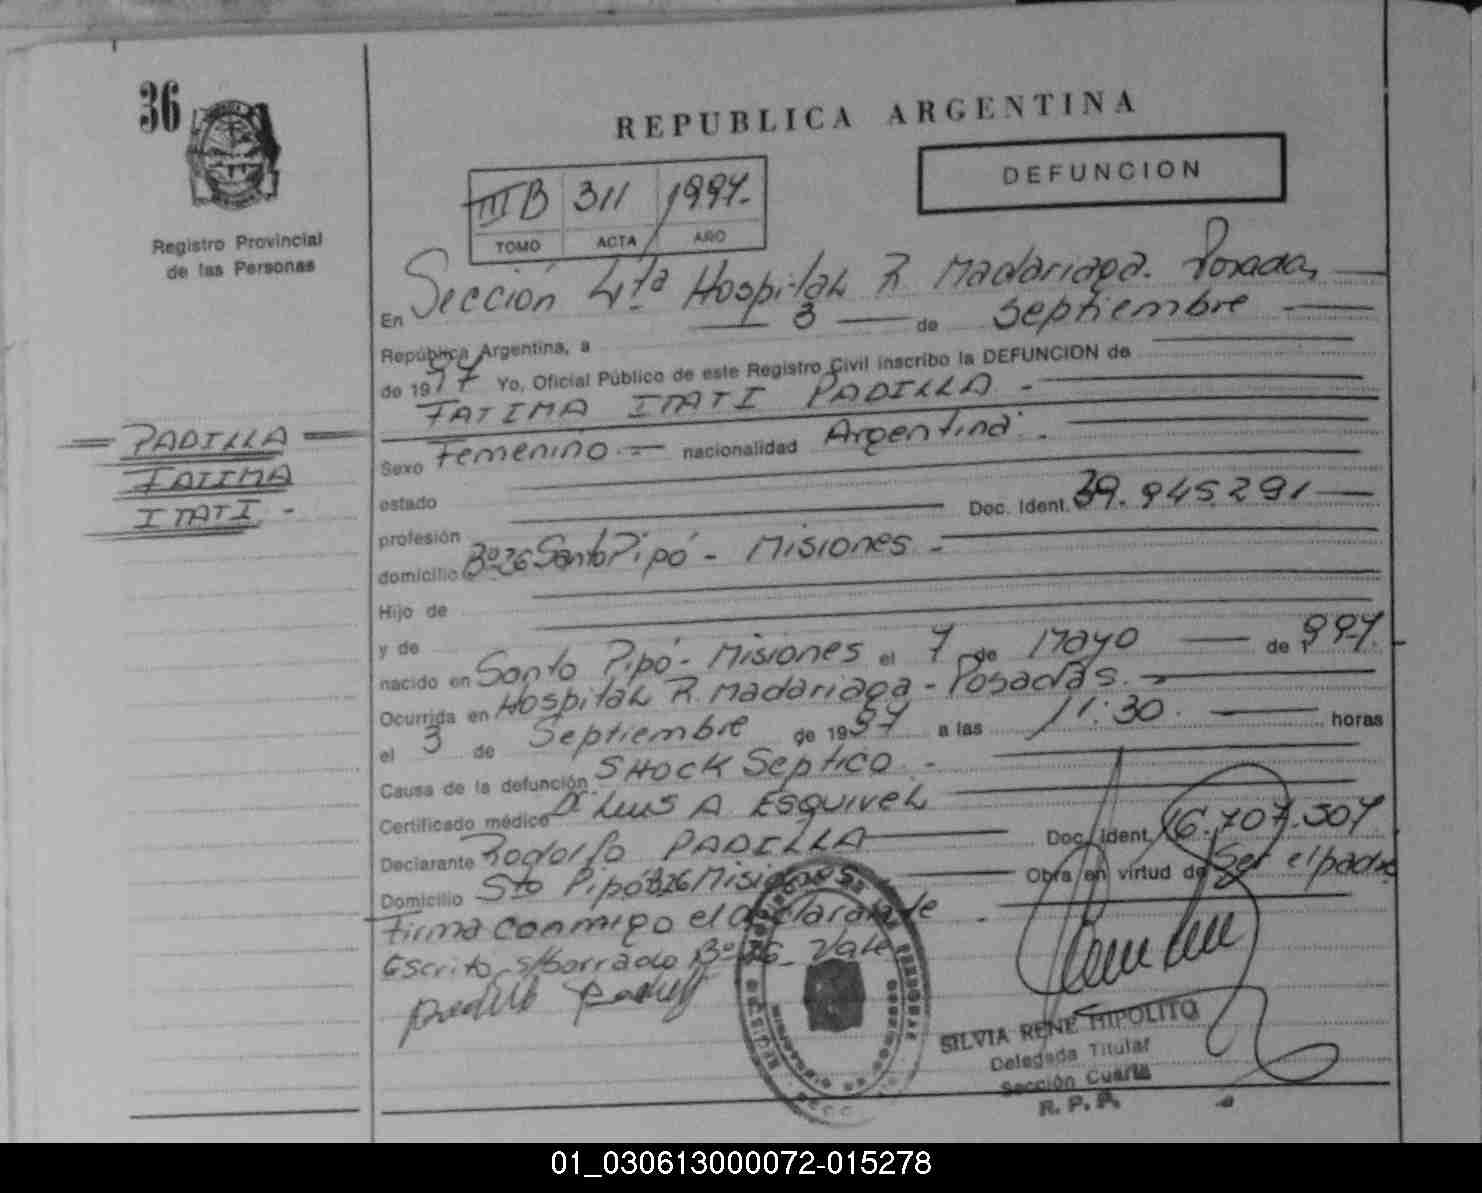 36
REPUBLICA ARGENTINA
DEFUNCION
III B 311 1997.-
TOMO ACTA AÑO
Registro Provincial
de las Personas
En Sección 4ta Hospital R. Madariaga. Posadas,
República Argentina, a 3 de septiembre
de 1997 Yo, Oficial Público de este Registro Civil inscribo la DEFUNCION de
FATIMA ITATI PADILLA -
PADILLA
FATIMA
ITATI -
Sexo Femenino.- nacionalidad Argentina.-
estado
profesión Doc. Ident. 39.945.291
domicilio Bº 26 Santo Pipó - Misiones -
Hijo de
y de
nacido en Santo Pipó - Misiones el 7 de Mayo de 1997.
Ocurrida en Hospital R. Madariaga - Posadas. -
el 3 de Septiembre de 1997 a las 11:30 horas
Causa de la defunción SHOCK Septico. -
Certificado médico Dr Luis A. ESQUIVEL
Declarante Rodolfo PADILLA Doc. Ident. 16.707.507
Domicilio Sto Pipó B26 Misiones Obra en virtud de Ser el padre
Firma conmigo el declarante -
Escrito s/borrado Bº 26 - Vale
SILVIA RENE HIPOLITO
Delegada Titular
Sección Cuarta
R. P. P.
01_030613000072-015278